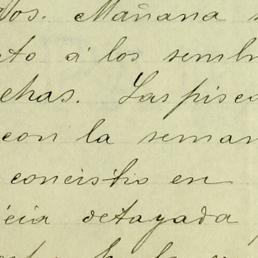 os. Mañana
to á los sembr
chas. Las pisca
con la seman
concistio en
cia detayada